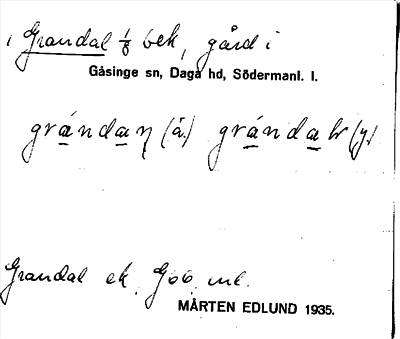 Grandal 1/8 bek, gård i
Gåsinge sn, Daga hd, Södermanl. l.
grándaη (ä.) grándaɫr (y.)
Grandal ek. Göö ml.
MÅRTEN EDLUND 1935.